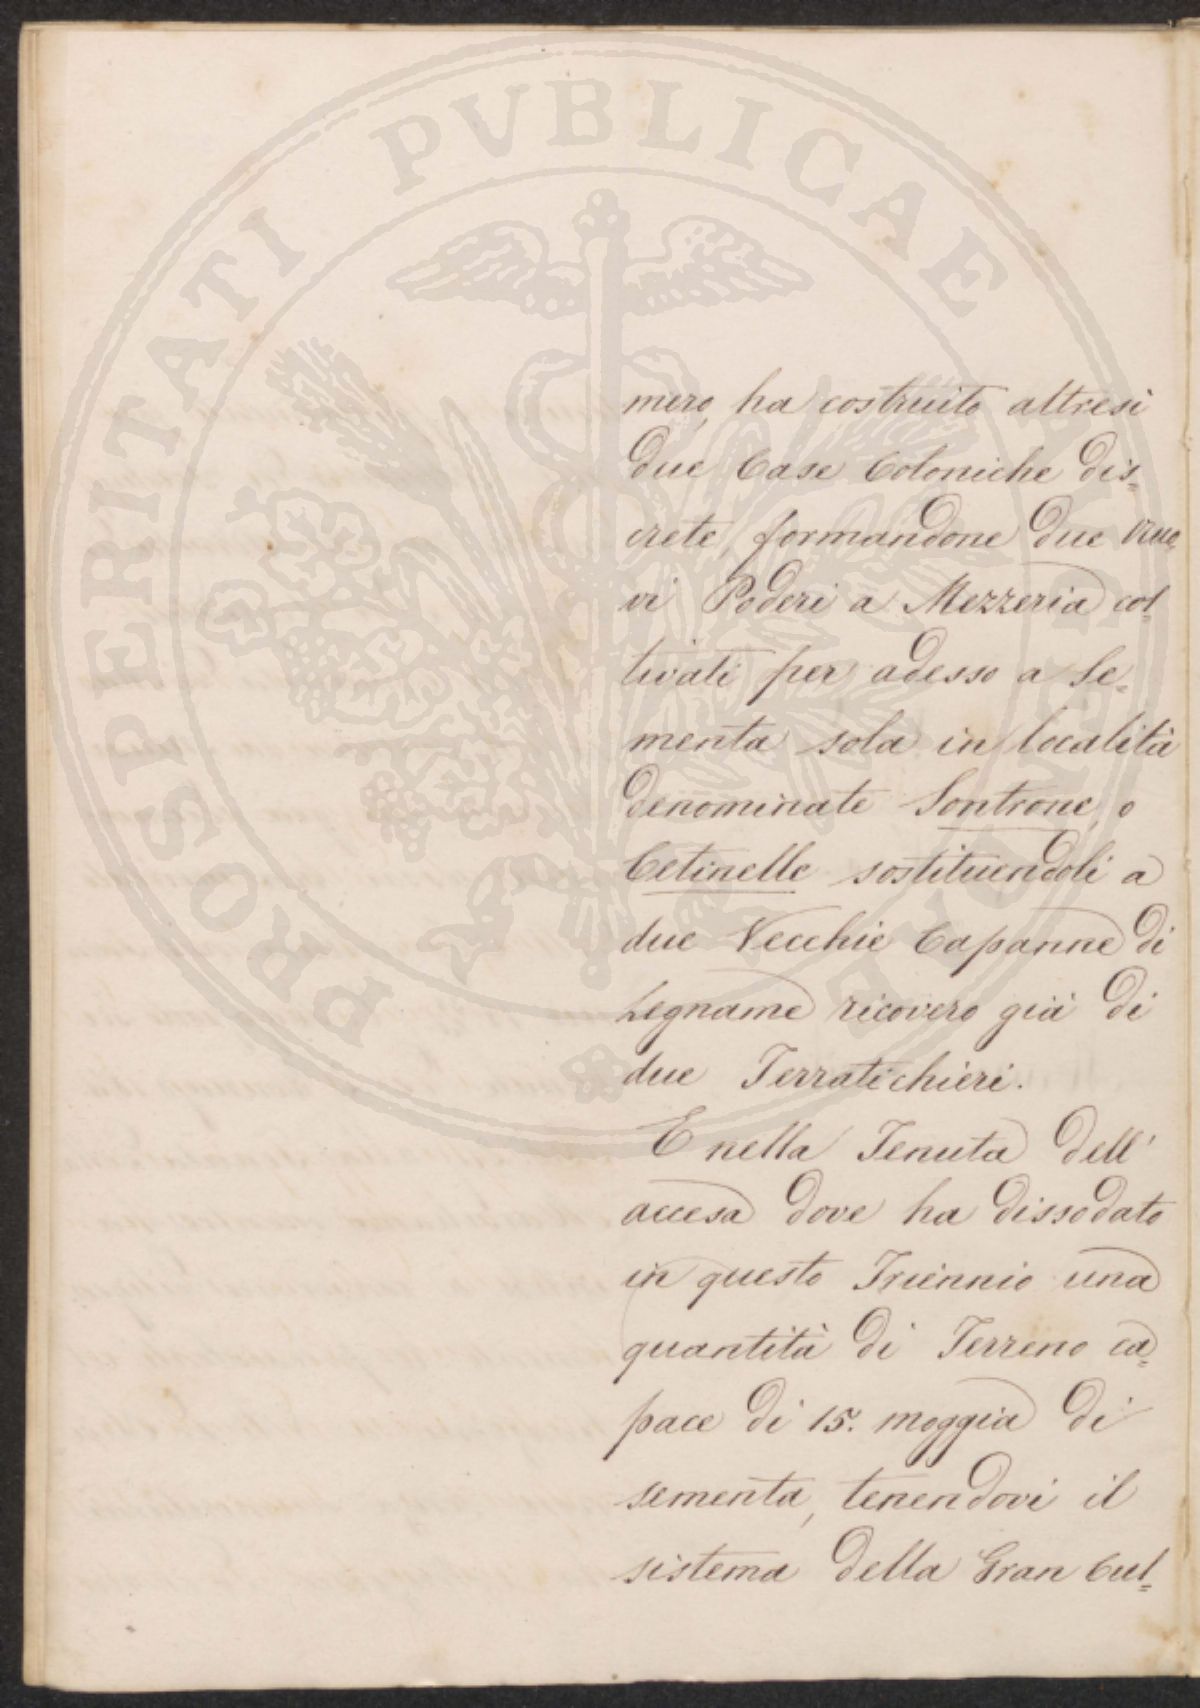 PROSPERITATI PVBLICAE
mero, ha costruito altresì
due Case Coloniche dis=
crete, formandone due nuo=
vi Poderi a Mezzeria col=
tivati per adesso a Se=
menta sola in località
denominate Sontrone, o
Cetinelle sostituendoli a
due Vecchie Capanne di
Legname ricovero già di
due Terratichieri.
E nella Tenuta dell'
accesa dove ha dissodato
in questo Triennio una
quantità di Terreno ca=
pace di 15. moggia di
sementa, tenendovi il
sistema della Gran Cul=